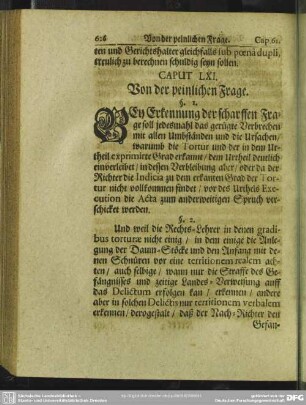 628 Von der peinlichen Frage. Cap. 61.
ten und Gerichtshalter gleichfalls sub pœnâ dupli,
treulich zu berechnen schuldig seyn sollen.
CAPUT LXI.
Von der peinlichen Frage.
§. 1.
BEy Erkennung der scharffen Fra-
ge soll jedesmahl das gerügte Verbrechen
mit allen Umbständen und die Ursachen,
warumb die Tortur und der in dem Ur-
theil exprimirte Grad erkannt / dem Urtheil deutlich
einverleibet / in dessen Verbleibung aber / oder da der
Richter die Indicia zu dem erkanten Grad der Tor-
tur nicht vollkommen findet / vor des Urtheils Exe-
cution die Acta zum anderweitigen Spruch ver-
schicket werden.
§. 2.
Und weil die Rechts-Lehrer in denen gradi-
bus torturæ nicht einig / in dem einige die Anle-
gung der Daum-Stöcke und den Anfang mit de-
nen Schnüren vor eine territionem realem ach-
ten / auch selbige / wann nur die Straffe des Ge-
fängnisses und zeitige Landes-Verweisung auff
das Delictum erfolgen kan / erkennen / andere
aber in solchen Delictis nur territionem verbalem
erkennen / dergestalt / daß der Nach-Richter den
Gefan-